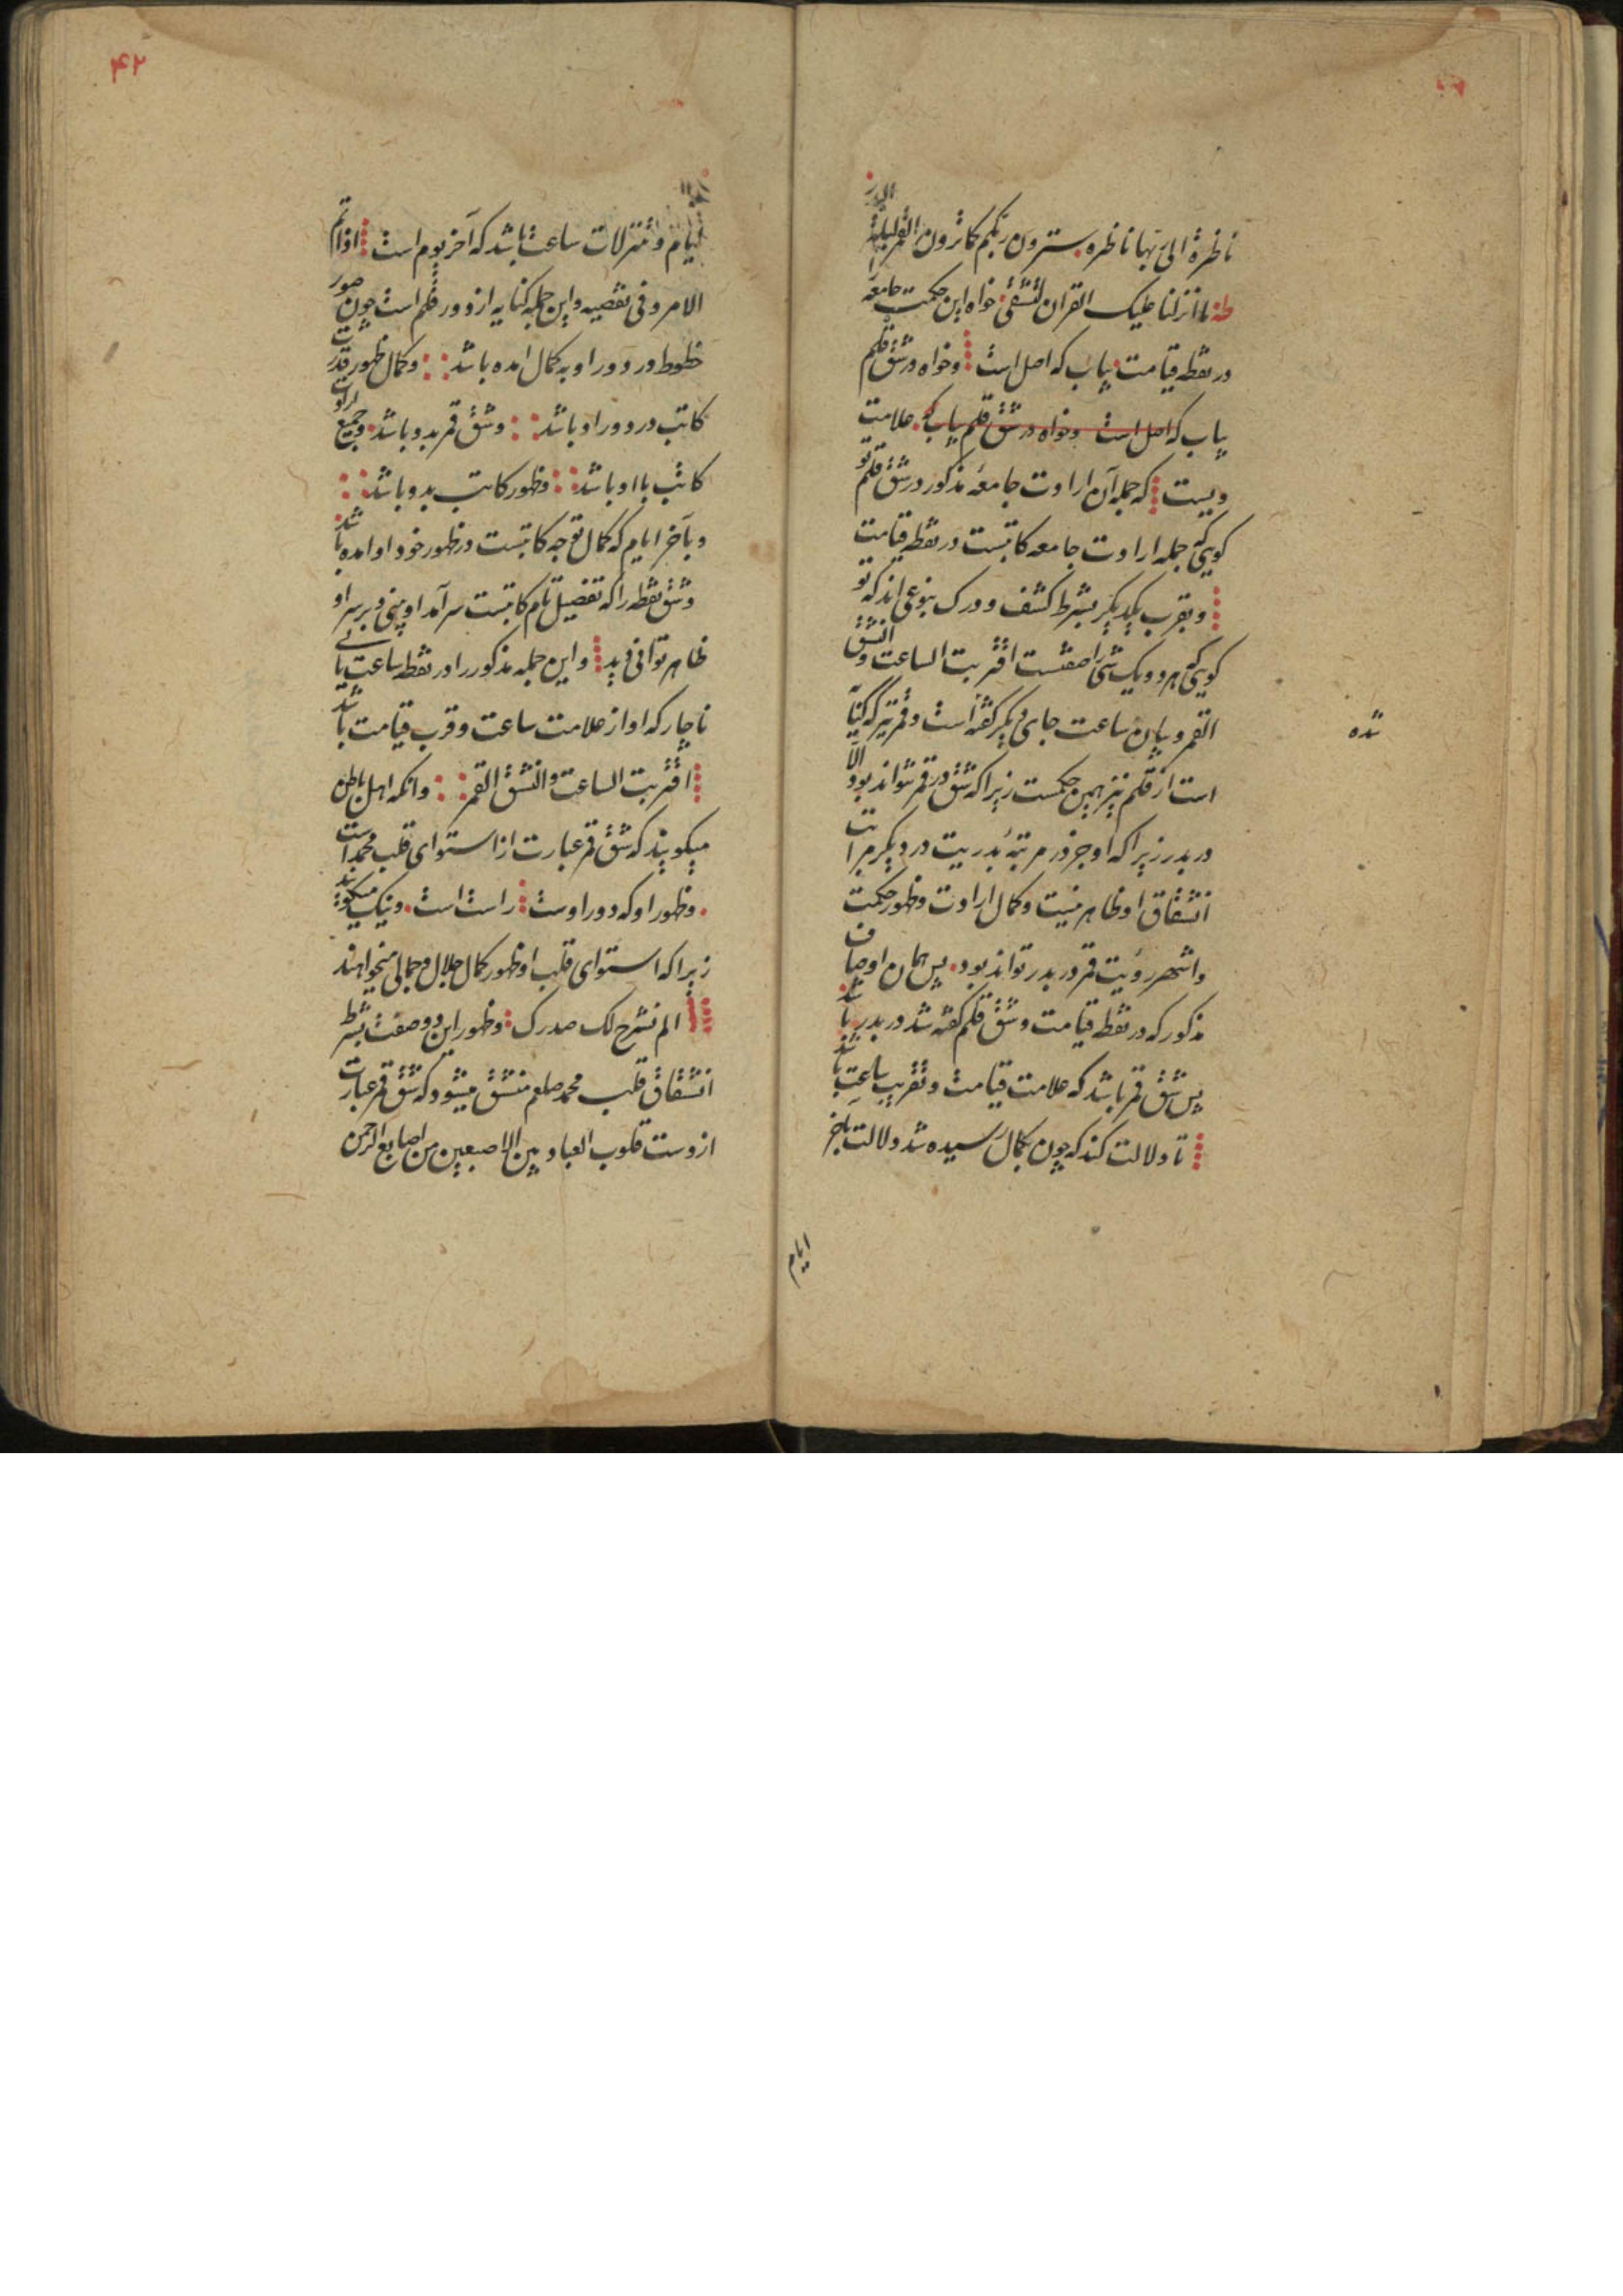 ناظرة الی ربها ناظره سترون ربکم کما ترون القمر لیلة البدر
طه ما انزلنا علیک القران لتشقی خواه این حکمت جامعه
در نقطه قیامت بیاب که اصل است وخواه در شق قلم
بیاب که اصل است وخواه در شق قلم بیاب که علامت
ویست که جمله آن ارادت جامعه مذکور در شق قلم تو
کویی که جمله ارادت جامعه کاتبست در نقطه قیامت
وبقرب یکدیکر بشرط کشف ودرک بنوعی اند که تو
کویی که هر دو یک شی را صفتست اقتربت الساعت وانشق
القمر وبیان ساعت جای دیکر کفته است وقمر نیز که کنایت
شده
است از قلم نیز همین حکمست زیرا که شق در قمر نتواند بود الا
در بدر زیرا که او جز در مرتبه بدریت در دیکر مراتب
انشقاق او ظاهر نیست وکمال ارادت وظهور حکمت
واشهر رؤیت قمر در بدر تواند بود پس همان اوصاف
مذکور که در نقطه قیامت وشق قلم کفته شد در بدر باشد
پس شق قمر باشد که علامت قیامت وتقریب ساعت باشد
تا دلالت کند که چون بکمال رسیده شد دلالت بآخر
ایام
۴۲
ایام وتنزلات ساعت باشد که آخر یوم است اذا تم
الامر وفی نقصیه واین جمله کنایه از دور قلم است چون صور
خطوط در دور او به کمال امده باشد وکمال ظهور قدرت
کاتب در دور او باشد وشق قمر بدو باشد وجمیع ارادت
کاتب با او باشد وظهور کاتب بدو باشد
وبآخر ایام که کمال توجه کاتبست در ظهور خود او امده باشد
وشق نقطه را که تفضیل تام کاتبست سرآمد او بینی وبر سر او
ظاهر توانی دید واین جمله مذکور را در نقطه ساعت یابی
ناچار که او از علامت ساعت وقرب قیامت باشد
اقتربت الساعت وانشق القمر وانکه اهل باطن
میکویند که شق قمر عبارت از استوای قلب محمد است
وظهور او که دور اوست راست است ونیک میکویند
زیرا که استوای قلب او ظهور کمال جلال وجمالی میخواهند
الم نشرح لک صدرک وظهور این دو صفت بشرط
انشقاق قلب محمد صلعم منشق میشود که شق قمر عبارت
ازوست قلوب العباد بین الاصبعین من اصابع الرحمن